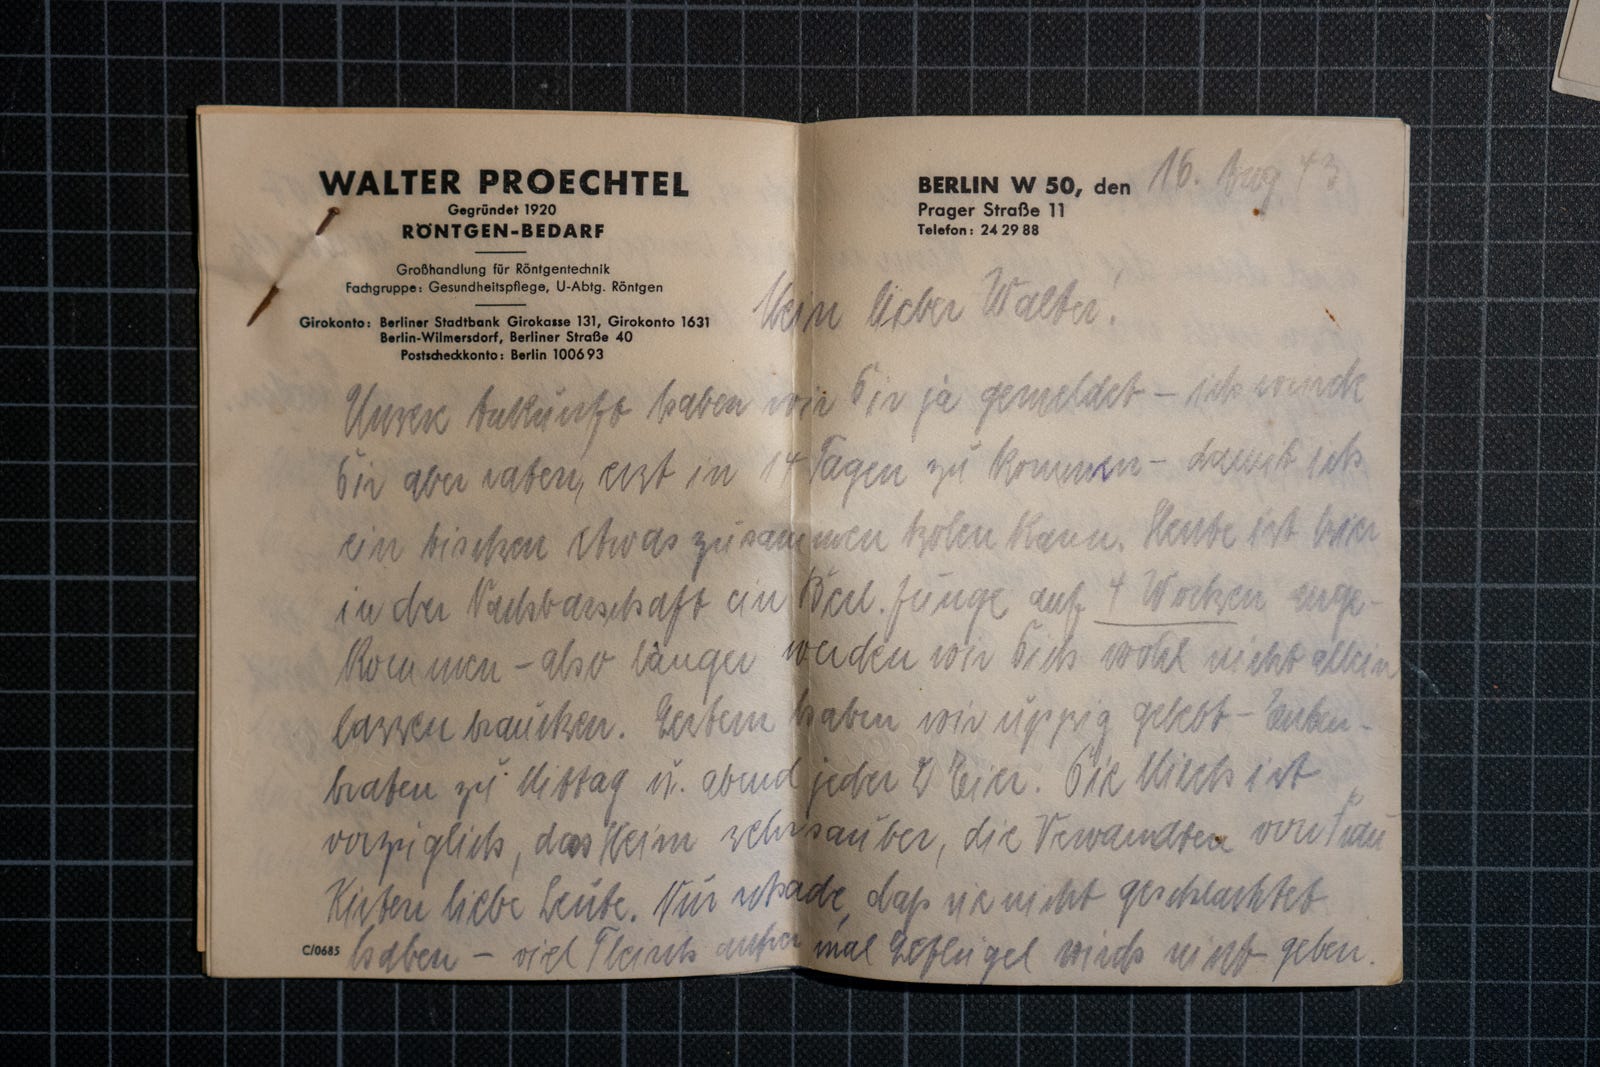 WALTER PROECHTEL
Gegründet 1920
RÖNTGEN-BEDARF
Großhandlung für Röntgentechnik
Fachgruppe: Gesundheitspflege, U-Abtg. Röntgen
Girokonto: Berliner Stadtbank Girokasse 131, Girokonto 1631
Berlin-Wilmersdorf, Berliner Straße 40
Postscheckkonto: Berlin 100693
BERLIN W 50, den 16. Aug 43
Prager Straße 11
Telefon: 24 29 88
Mein lieber Walter!
Unsere Ankunft haben wir Dir ja gemeldet – ich würde
Dir aber raten, erst in 14 Tagen zu kommen – damit ich
ein bischen etwas zusammen holen kann. Heute ist hier
in der Nachbarschaft ein Berl. Junge auf 4 Wochen ange-
kommen – also länger werden wir Dich wohl nicht allein
lassen brauchen. Gestern haben wir üppig gelebt – Enten-
braten zu Mittag u. abend jeder 2 Eier. Die Milch ist
vorzüglich, das Heim sehr sauber, die Verwandten von Frau
Kisten liebe Leute. Nur schade, daß sie nicht geschlachtet
haben – viel Fleisch außer mal Geflügel wirds nicht geben.
C/0685